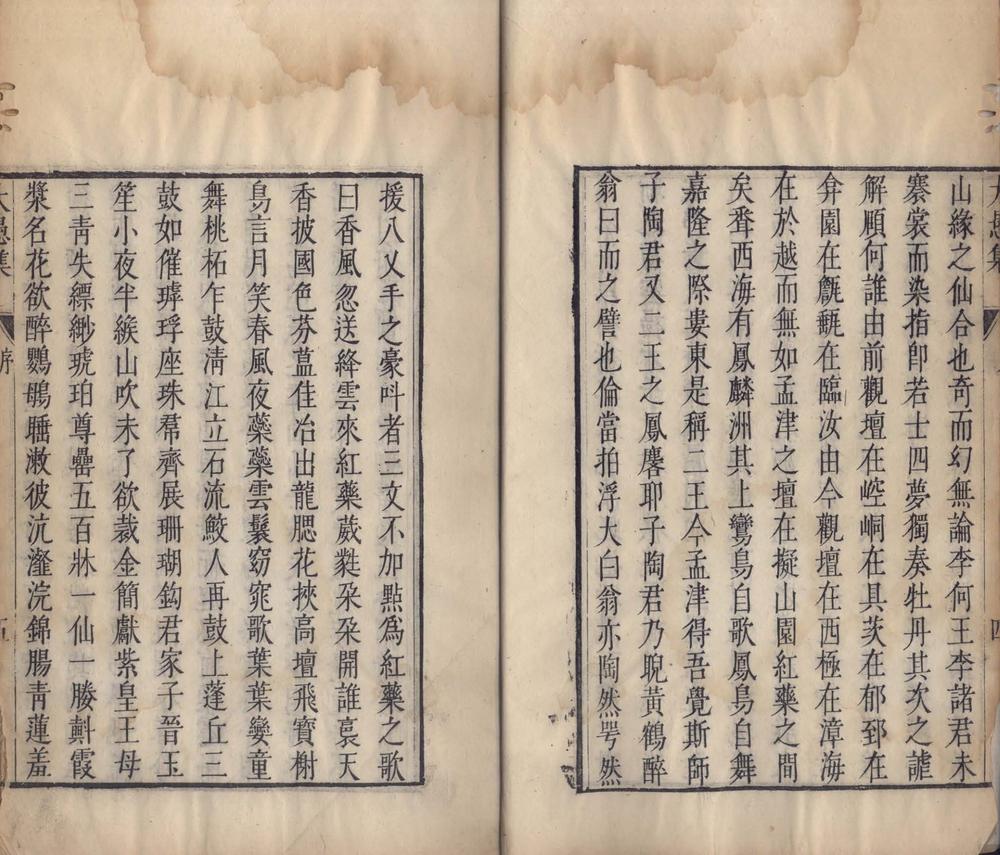 山緣之仙合也奇而幻無論李何王李諸君未
褰裳而染指卽若士四夢獨奏牡丹其次之謔
解頤何誰由前觀壇在崆峒在具茨在郁郅在
弇園在甗甀在臨汝由今觀壇在西極在漳海
在於越而無如孟津之壇在擬山園紅藥之間
矣耷西海有鳳麟洲其上鸞鳥自歌鳳鳥自舞
嘉隆之際婁東是稱二王今孟津得吾覺斯師
子陶君又二王之鳳麐耶子陶君乃睨黃鶴醉
翁曰而之譬也倫當拍浮大白翁亦陶然咢然
援八乂手之豪呌者三文不加點爲紅藥之歌
曰香風忽送絳雲來紅藥葳蕤朶朶開誰裛天
香披國色芬葢佳冶出龍腮花挾高壇飛寶榭
鳥言月笑春風夜藥藥雲鬟窈窕歌葉葉孌童
舞桃柘乍鼓淸江立石流鮫人再鼓上蓬丘三
鼓如催琸琈座珠帬齊展珊瑚鈎君家子晉玉
笙小夜半緱山吹未了欲裁金簡獻紫皇王母
三靑失縹緲琥珀尊罍五百牀一仙一勝𣂏霞
漿名花欲醉鸚鵡睡漱彼沆瀣浣錦腸靑蓮羞
大愚集
序
五
四